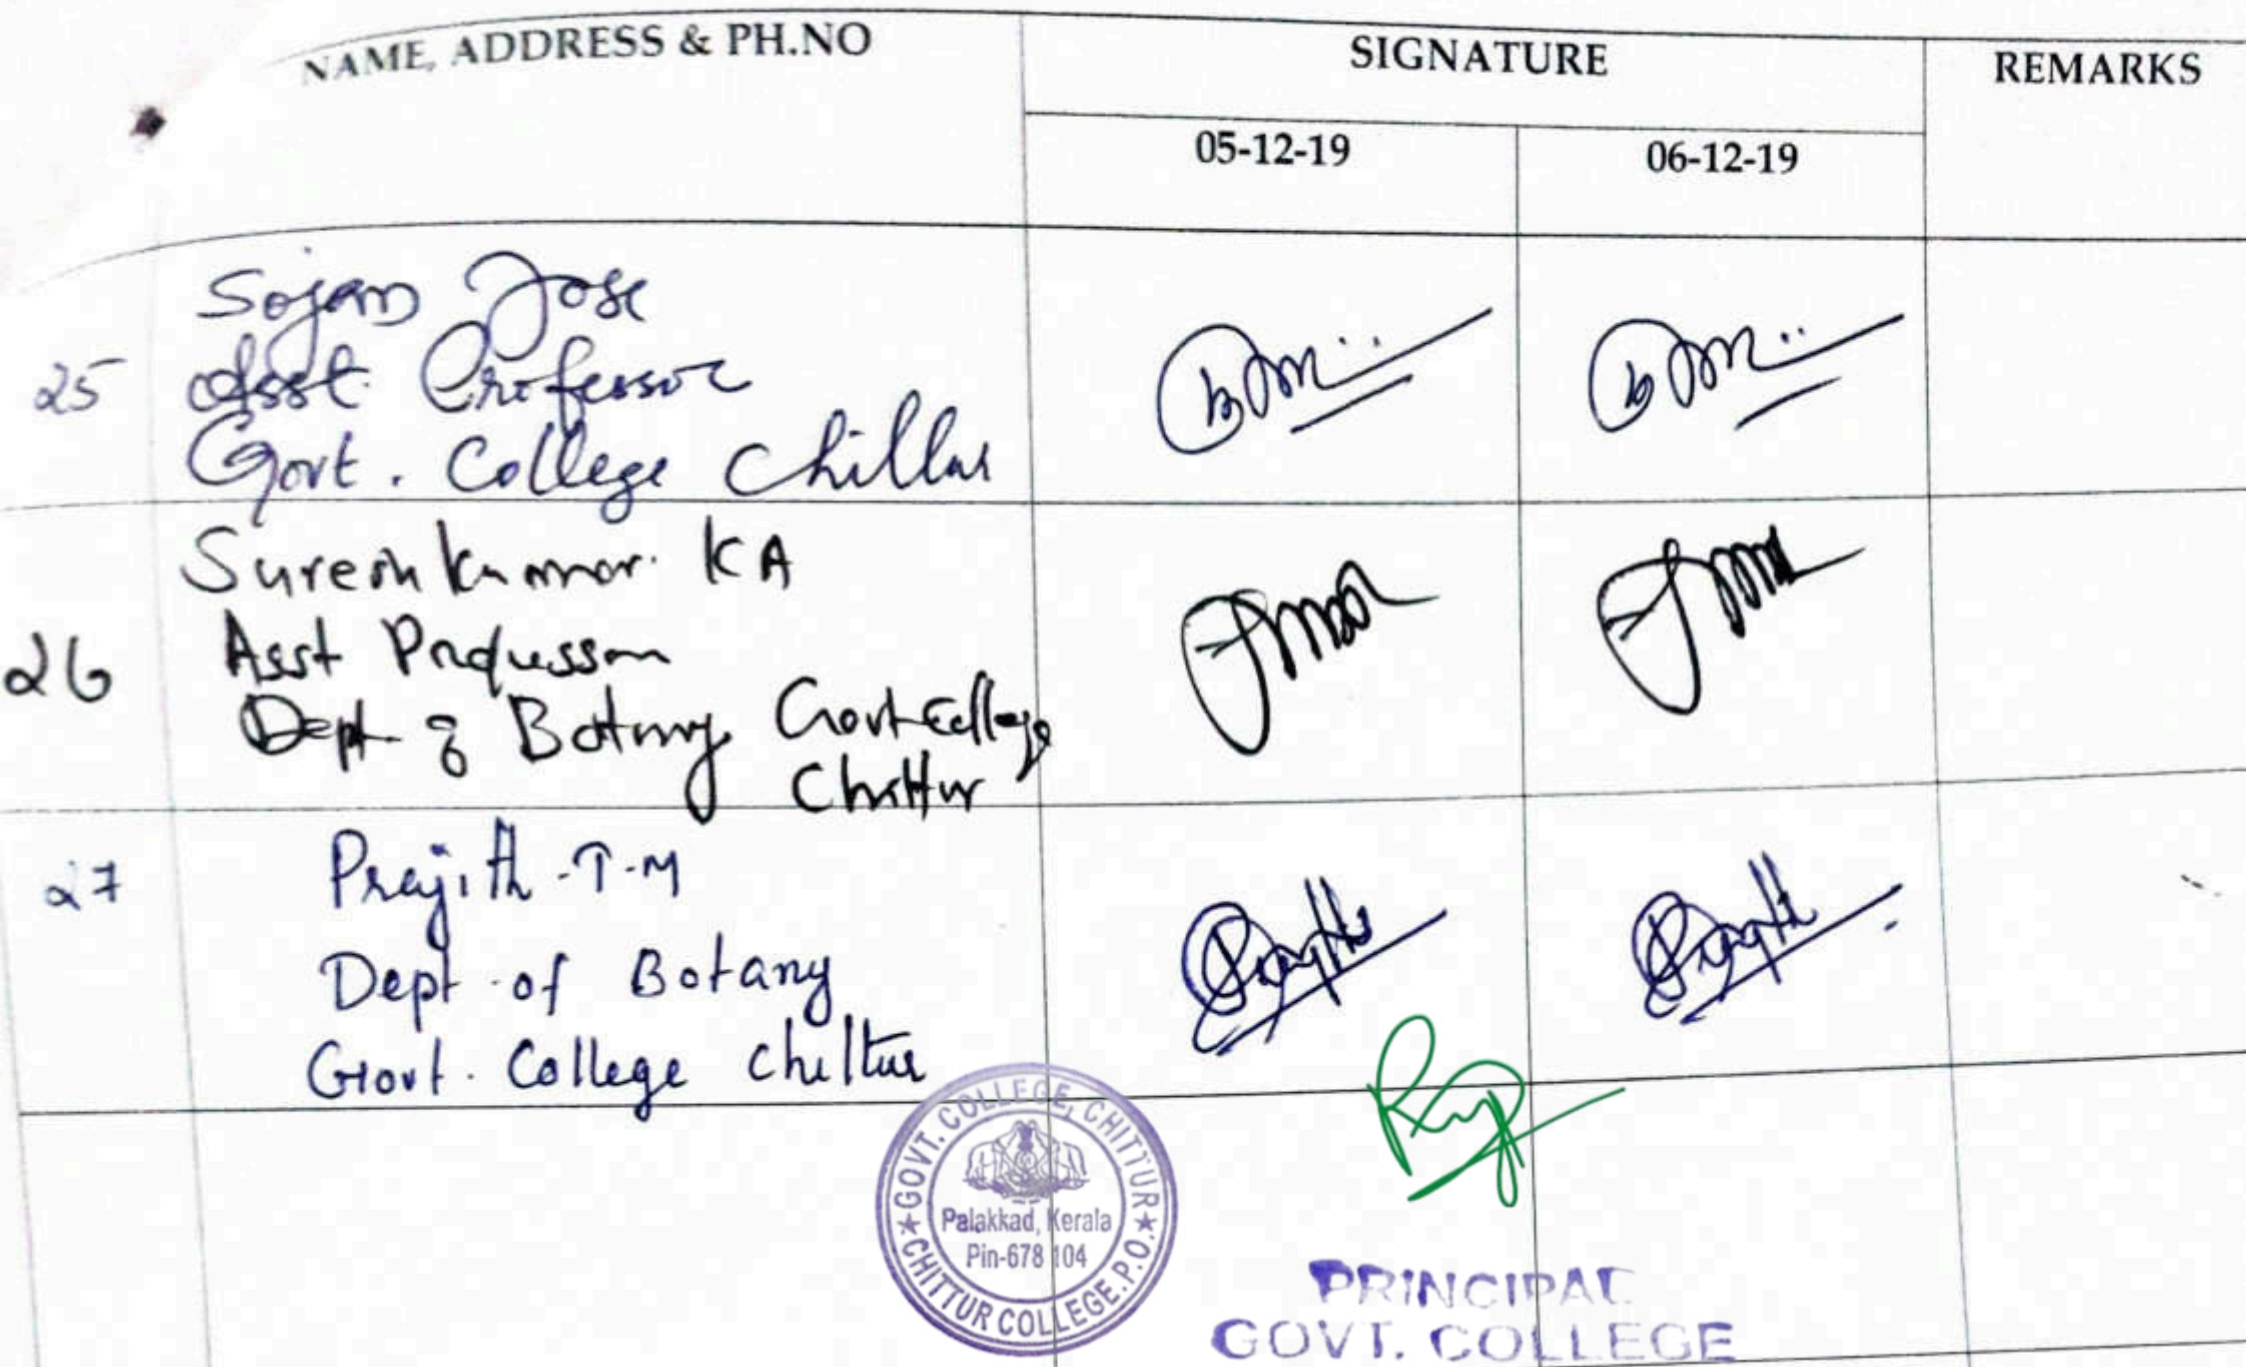 NAME, ADDRESS & PH.NO
SIGNATURE
REMARKS
05-12-19
06-12-19
25
Sojan Jose
Asst. Professor
Govt. College Chittur
26
Sureshkumar. KA
Asst Professor
Dept of Botany Govt College
Chittur
27
Prajith.T.M
Dept of Botany
Govt. College Chittur
★GOVT. COLLEGE, CHITTUR★
Palakkad, Kerala
Pin-678 104
CHITTUR COLLEGE.P.O.
PRINCIPAL
GOVT. COLLEGE